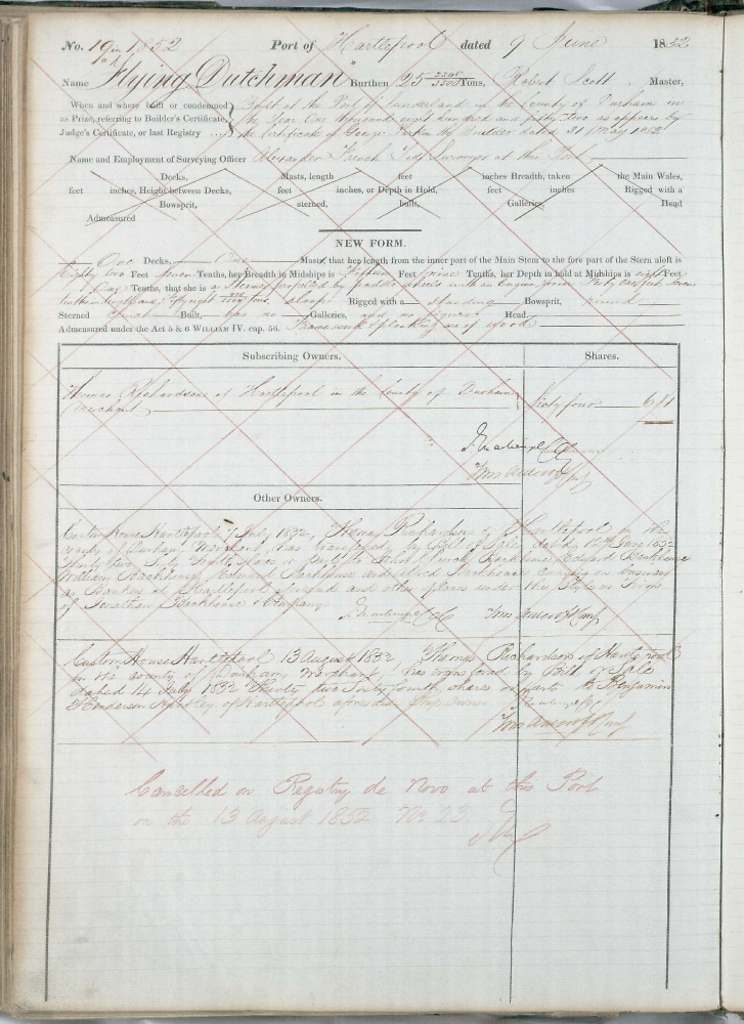 No. 19 in 1852 Port of Hartlepool dated 9 June 1852
Name "Flying Dutchman" Burthen 25 Tons, Robert Scott Master,
When and where built or condemned as Prize, referring to Builder's Certificate, Judge's Certificate, or last Registry
Built at the Port of Sunderland in the County of Durham in
the Year One thousand eight hundred and fifty two as appears by
the Certificate of George the Builder dated 31 May 1852
Name and Employment of Surveying Officer Alexander French Tide Surveyor at this Port
Decks, Masts, length feet inches Breadth, taken the Main Wales,
feet inches, Height between Decks, feet inches, or Depth in Hold, feet inches Rigged with a
Bowsprit, sterned, built, Galleries, Head
Admeasured
NEW FORM.
One Decks, One Mast, that her length from the inner part of the Main Stem to the fore part of the Stern aloft is
Eighty two Feet seven Tenths, her Breadth in Midships is Fifteen Feet nine Tenths, her Depth in hold at Midships is eight Feet
Tenths, that she is a Steamer propelled by paddle wheels with an Engine room Forty
Tons, sloop Rigged with a standing Bowsprit, round
Sterned Built, has no Galleries, and no figure Head.
Admeasured under the Act 5 & 6 WILLIAM IV. cap. 56. Framework & planking is of wood
Subscribing Owners. Shares.
Thomas Richardson of Hartlepool in the County of Durham
Merchant Sixty four 64
Other Owners.
Custom House Hartlepool July 1852, Thomas Richardson of Hartlepool in the
County of Durham Merchant, has transferred by Bill of Sale dated June 1852
Thirty two Sixty fourth shares or parts to Backhouse, Edmund Backhouse
William Backhouse, Backhouse and Backhouse Carrying on business
as Bankers at Hartlepool aforesaid and other places under the Style or Firm
of Jonathan Backhouse & Company
Custom House Hartlepool 13 August 1852, Thomas Richardson of Hartlepool
in the County of Durham Merchant, has transferred by Bill of Sale
dated 14 July 1852 Thirty two Sixty fourth shares or parts to Benjamin
Henderson of Hartlepool aforesaid Ship Owner
Cancelled on Registry de Novo at this Port
on the 13 August 1852 No 23